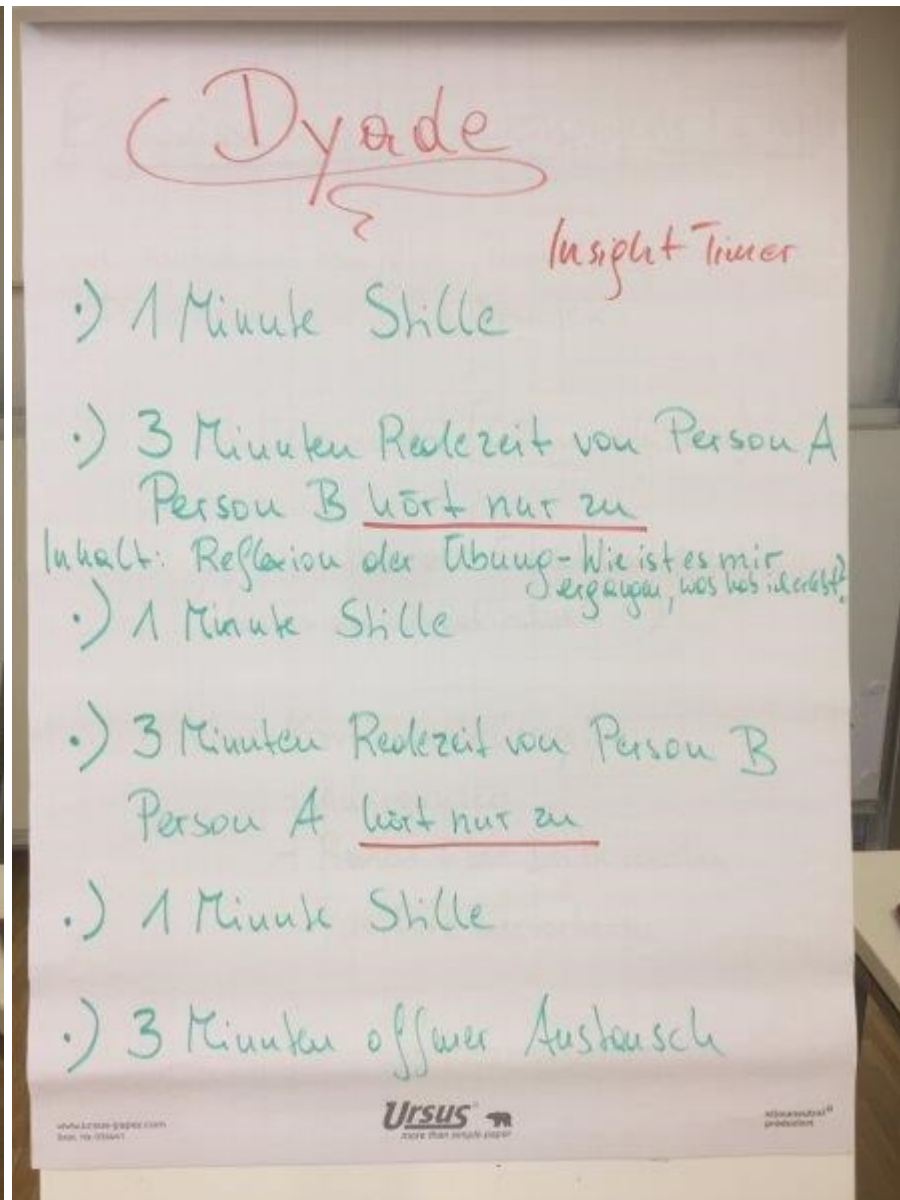 Dyade
Insight Timer
.) 1 Minute Stille
.) 3 Minuten Redezeit von Person A
Person B hört nur zu
Inhalt: Reflexion der Übung - Wie ist es mir
ergangen, was hab ich erlebt?
.) 1 Minute Stille
.) 3 Minuten Redezeit von Person B
Person A hört nur zu
.) 1 Minute Stille
.) 3 Minuten offener Austausch
www.ursus-paper.com
Ursus
more than simple paper
klimaneutral
produziert